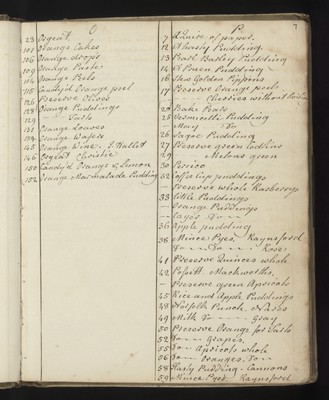 O
23 Orgeat
101 Orange Cakes
106 Orange drops
109 Orange Paste
114 Orange Peels
115 Candy'd Orange peel
126 Preserve Olives
128 Orange Puddings
129 Tarts
131 Orange Loaves
134 Orange Wafers
145 Orange Wine. J. Hallet
146 Orgeat Christie
150 Candy'd Orange & Lemon
152 Orange Marmalade Pudding
P
7
7 A Quire of paper
12 A Pudding
13 Pearl Barley Pudding
14 A Pudding
16 Stew Golden Pippins
17 Preserve Orange peels
Cherries without
20 Bake Pears
25 Vermicelli Pudding
26 Sagoe Pudding
27 Preserve green Codlins
29 Melons green
30 Persico
32 Coffee Cup puddings
Preserve whole Rasberrys
33 Little Puddings
Orange Puddings
36 Apple pudding
38 Mince Pyes. Raynsford
Do Do Roses
41 Preserve Quinces whole
42 Possett Mackworths.
Preserve green Apricots
45 Rice and Apple Puddings
48 Norfolk Punch. Nasho
49 Milk Do Gray
50 Preserve Orange for Tarts
52 Do Grapes.
55 Do Apricots whole
56 Do Oranges. Do
58 Hasty Pudding. Cannons
59 Mince Pyes. Raynsford